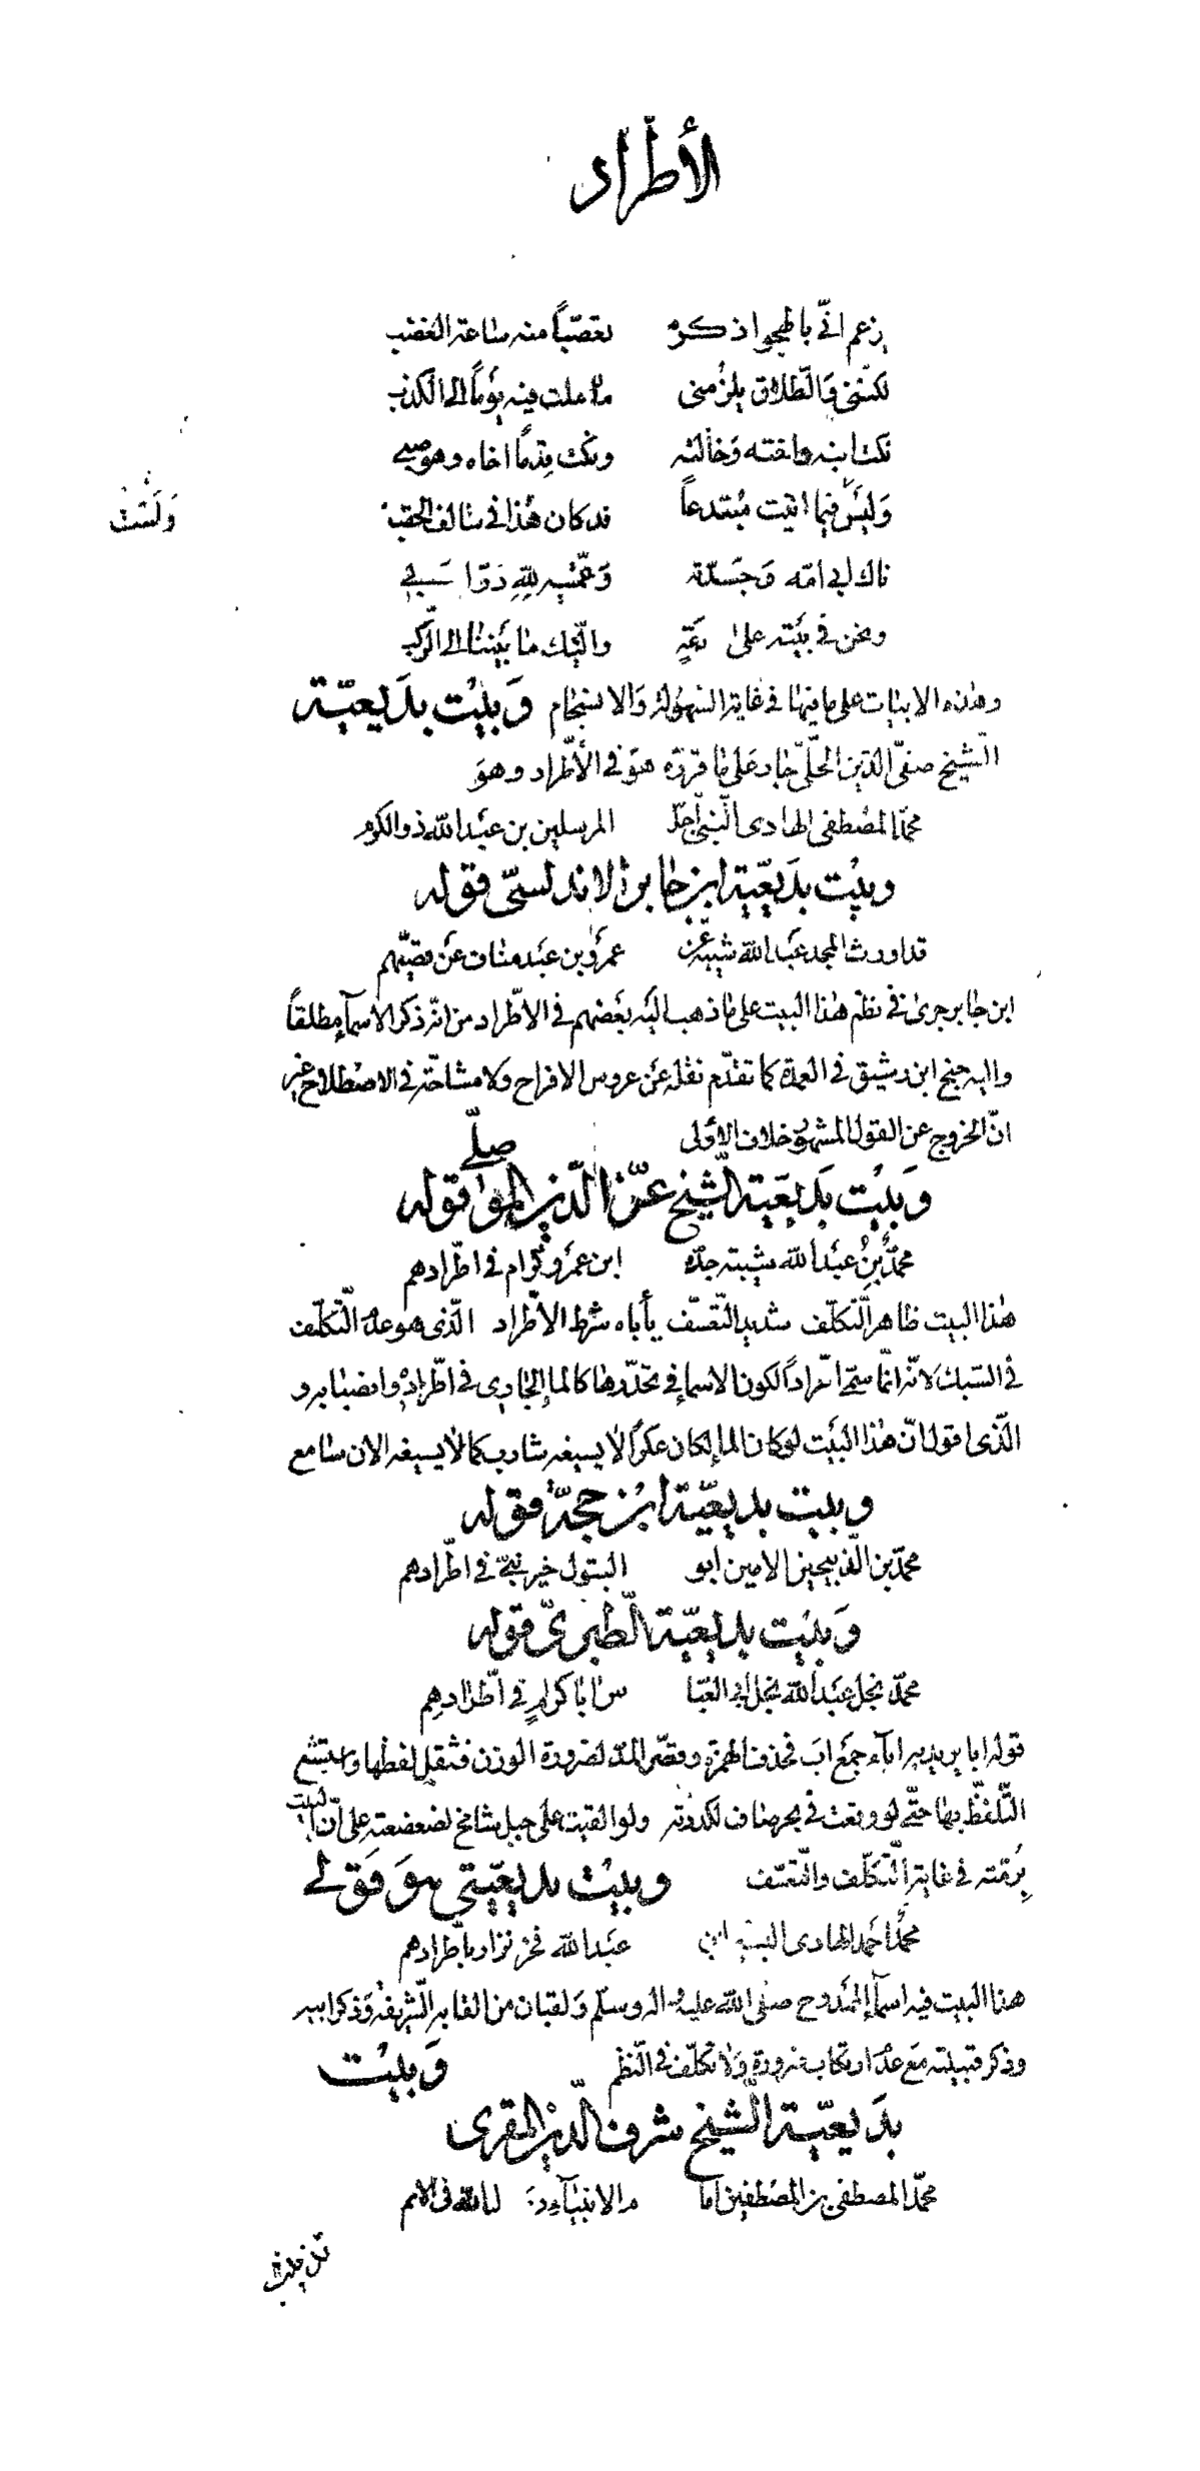 الأطّراد
يزعم انّي بالهجو اذكره تعصّباً منه ساعة الغضب
لكنّني والطّلاق يلزمني ما ملت فيه يوماً الى الكذب
نكت ابنه واخته وخالته ونكت قدماً اخاه وهو صبي
وليس فيما اتيت مبتدعاً قد كان هذا في سالف الحقب
وَلَسْتُ
ناك ابي امّه وجدّته وعمّتيه لله درّ ابي
ونحن في بيته على والنيك ما بيننا الى الركب
وهذه الابيات على ما فيها في غاية السهولة والانسجام وَبَيْت بدَيعيّة
الشيخ صفيّ الدين الحلّيّ جار على ما قرّره هو في الأطّراد وهو
محمّد المصطفى الهادى النّبيّ اجلّ المرسلين بن عبد الله ذو الكرم
وبيت بديعيّة ابن جابر الاندلسيّ قوله
قد اورث المجد عبد الله شيبة عن عمرو بن عبد مناف عن قصيّهم
ابن جابر جرى في نظم هذا البيت على ما ذهب اليه بعضهم في الاطّراد من انّه ذكر الاسمآء مطلقاً
واليه جنح ابن رشيق في العمدة كما تقدّم نقله عن عروس الافراح ولا مشاحّة في الاصطلاح غير
انّ الخروج عن القول المشهور خلاف الأولى
وَبَيْت بَديعيّة الشّيخ عزّ الدّين الموصليّ قوله
محمّد بن عبد الله شيبة جدّه ابن عمرو كرام في اطّرادهم
هذا البيت ظاهر التّكلّف شديد التّعسّف يأباه شرط الأطّراد الّذى هو عدم التّكلّف
في السّبك لانّه انّما سمّي اطّراداً لكون الاسماء في تحدّرها كالماء الجارى في اطّراده وانصبابه و
الّذى اقول انّ هذا البيت لو كان الماء لكان عكراً لا يسيغه شارب كما لا يسيغه الان سامع
وبيت بديعيّة ابن حجّة قوله
محمّد بن الذّبيحين الامين ابو البتول خير نبيّ في اطّرادهم
وَبَيْت بديعيّة الطّبريّ قوله
محمّد نجل عبد الله نجل ابي العبّا س ابا كرام في اطّرادهم
قوله ابا يريد به ابآء جمع اب فحذف الهمزة وقصّر المدّ لضرورة الوزن فثقل لفظها واستبشع
التّلفّظ بها حتّى لو وقعت في بحر صاف لكدرته ولو القيت على جبل شامخ لضعضعته على انّ البيت
برمّته في غاية التّكلّف والتّعسّف وبيت بديعيّتي هو قولي
محمّد احمد الهادى ابن عبد الله فخر نزار باطّرادهم
هذا البيت فيه اسمآء الممدوح صلى الله عليه واله وسلّم ولقبان من القابه الشّريفة وذكر ابيه
وذكر قبيلته مع عدم ارتكاب ضرورة ولا تكلّف في النّظم وَبَيْت
بدَيعيّة الشّيخ شرف الدّين المقرى
محمّد المصطفى بن المصطفين اما م الانبيآء لله في الامم